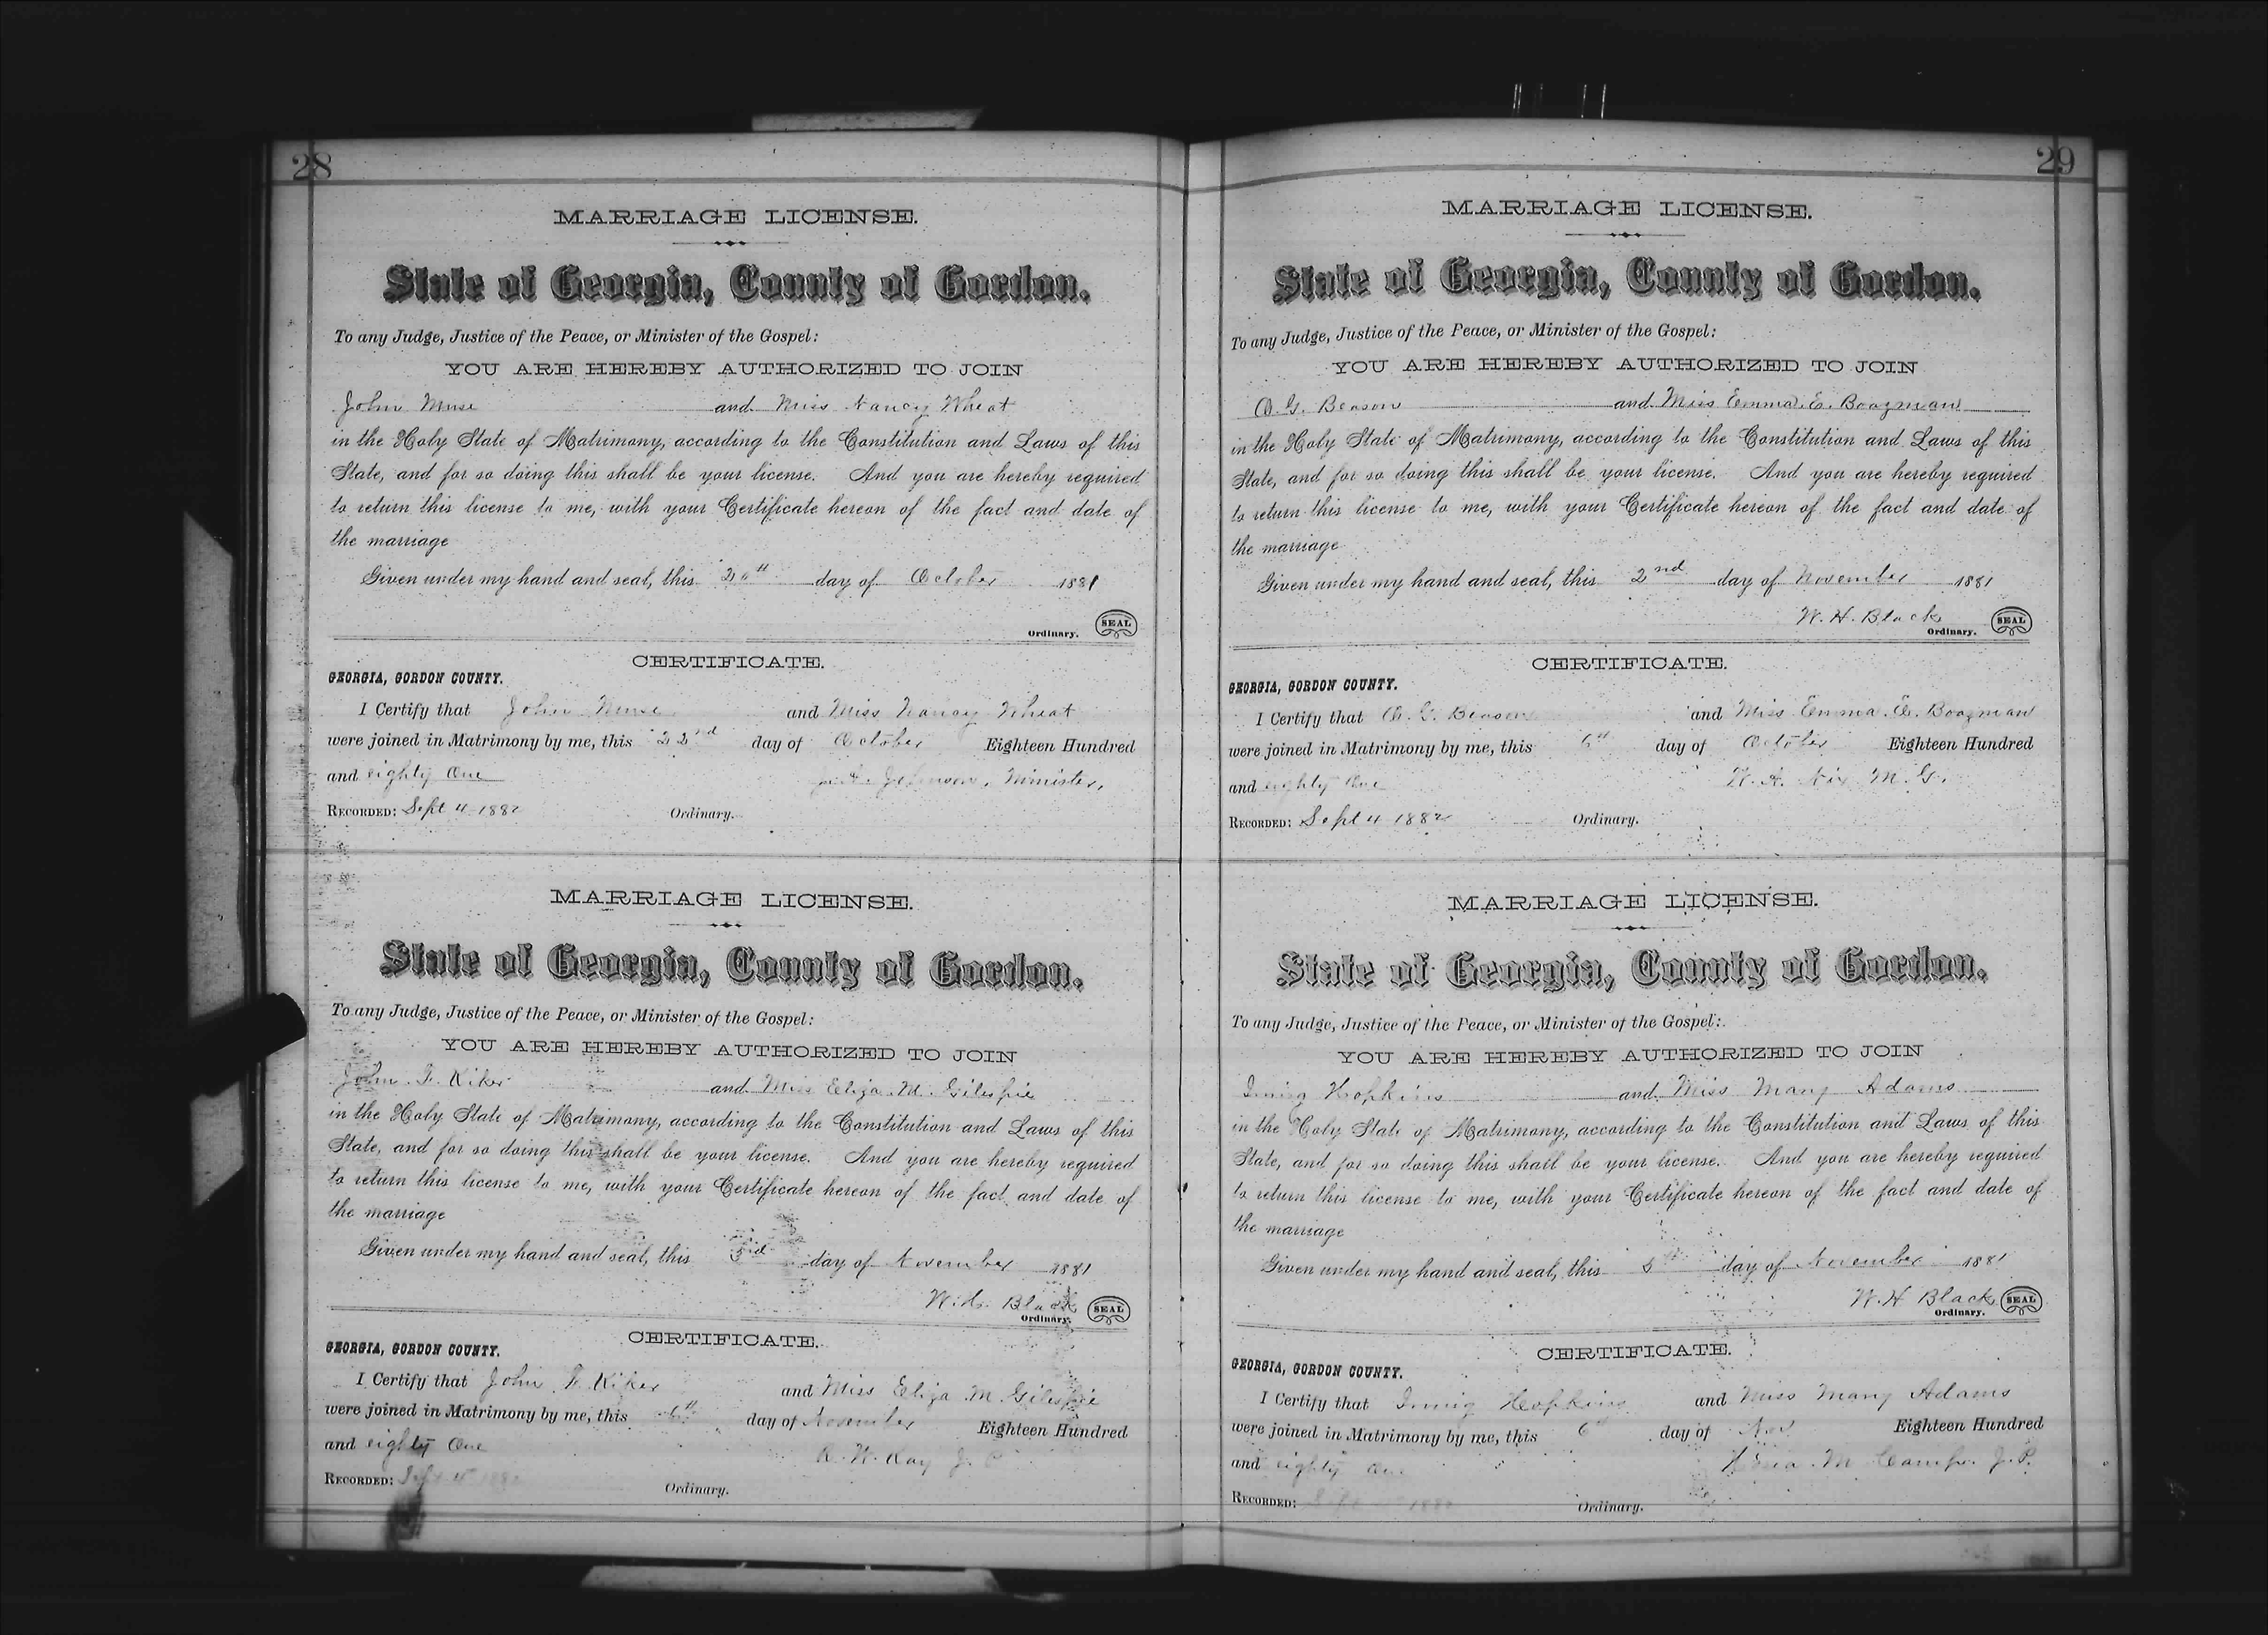 28
MARRIAGE LICENSE.
State of Georgia, County of Gordon.
To any Judge, Justice of the Peace, or Minister of the Gospel:
YOU ARE HEREBY AUTHORIZED TO JOIN
John Muse and Miss Nancy Wheat
in the Holy State of Matrimony, according to the Constitution and Laws of this
State, and for so doing this shall be your license. And you are hereby required
to return this license to me, with your Certificate hereon of the fact and date of
the marriage
Given under my hand and seal, this 20th day of October 1881
Ordinary. SEAL
CERTIFICATE.
GEORGIA, GORDON COUNTY.
I Certify that John Muse and Miss Nancy Wheat
were joined in Matrimony by me, this 22nd day of October Eighteen Hundred
and eighty One Johnson, Minister,
RECORDED: Sept 4 1882 Ordinary.
MARRIAGE LICENSE.
State of Georgia, County of Gordon.
To any Judge, Justice of the Peace, or Minister of the Gospel:
YOU ARE HEREBY AUTHORIZED TO JOIN
John F. Kiker and Miss Eliza M. Gilespie
in the Holy State of Matrimony, according to the Constitution and Laws of this
State, and for so doing this shall be your license. And you are hereby required
to return this license to me, with your Certificate hereon of the fact and date of
the marriage
Given under my hand and seal, this 3rd day of November 1881
W. H. Black
Ordinary. SEAL
CERTIFICATE.
GEORGIA, GORDON COUNTY.
I Certify that John F. Kiker and Miss Eliza M Gilespie
were joined in Matrimony by me, this 6th day of November Eighteen Hundred
and eighty One W. Kay J. P
RECORDED: Sept 4 1882 Ordinary.
29
MARRIAGE LICENSE.
State of Georgia, County of Gordon.
To any Judge, Justice of the Peace, or Minister of the Gospel:
YOU ARE HEREBY AUTHORIZED TO JOIN
O. G. Beason and Miss Emma. E. Boazman
in the Holy State of Matrimony, according to the Constitution and Laws of this
State, and for so doing this shall be your license. And you are hereby required
to return this license to me, with your Certificate hereon of the fact and date of
the marriage
Given under my hand and seal, this 2nd day of November 1881
W. H. Black
Ordinary. SEAL
CERTIFICATE.
GEORGIA, GORDON COUNTY.
I Certify that O. G. Beason and Miss Emma. E. Boazman
were joined in Matrimony by me, this 6th day of October Eighteen Hundred
and eighty One W. A. Nix M. G.
RECORDED: Sept 4 1882 Ordinary.
MARRIAGE LICENSE.
State of Georgia, County of Gordon.
To any Judge, Justice of the Peace, or Minister of the Gospel:
YOU ARE HEREBY AUTHORIZED TO JOIN
Hopkins and Miss Mary Adams
in the Holy State of Matrimony, according to the Constitution and Laws of this
State, and for so doing this shall be your license. And you are hereby required
to return this license to me, with your Certificate hereon of the fact and date of
the marriage
Given under my hand and seal, this 5th day of November 1881
W. H Black
Ordinary. SEAL
CERTIFICATE.
GEORGIA, GORDON COUNTY.
I Certify that Hopkins and Miss Mary Adams
were joined in Matrimony by me, this 6th day of Nov Eighteen Hundred
and eighty One M Camp. J. P.
RECORDED: Sept 1882 Ordinary.